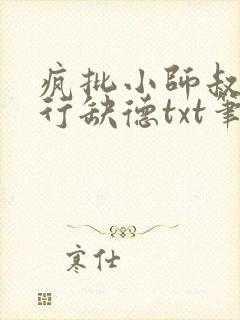 疯批小師叔
行缺德txt筆
寒仕